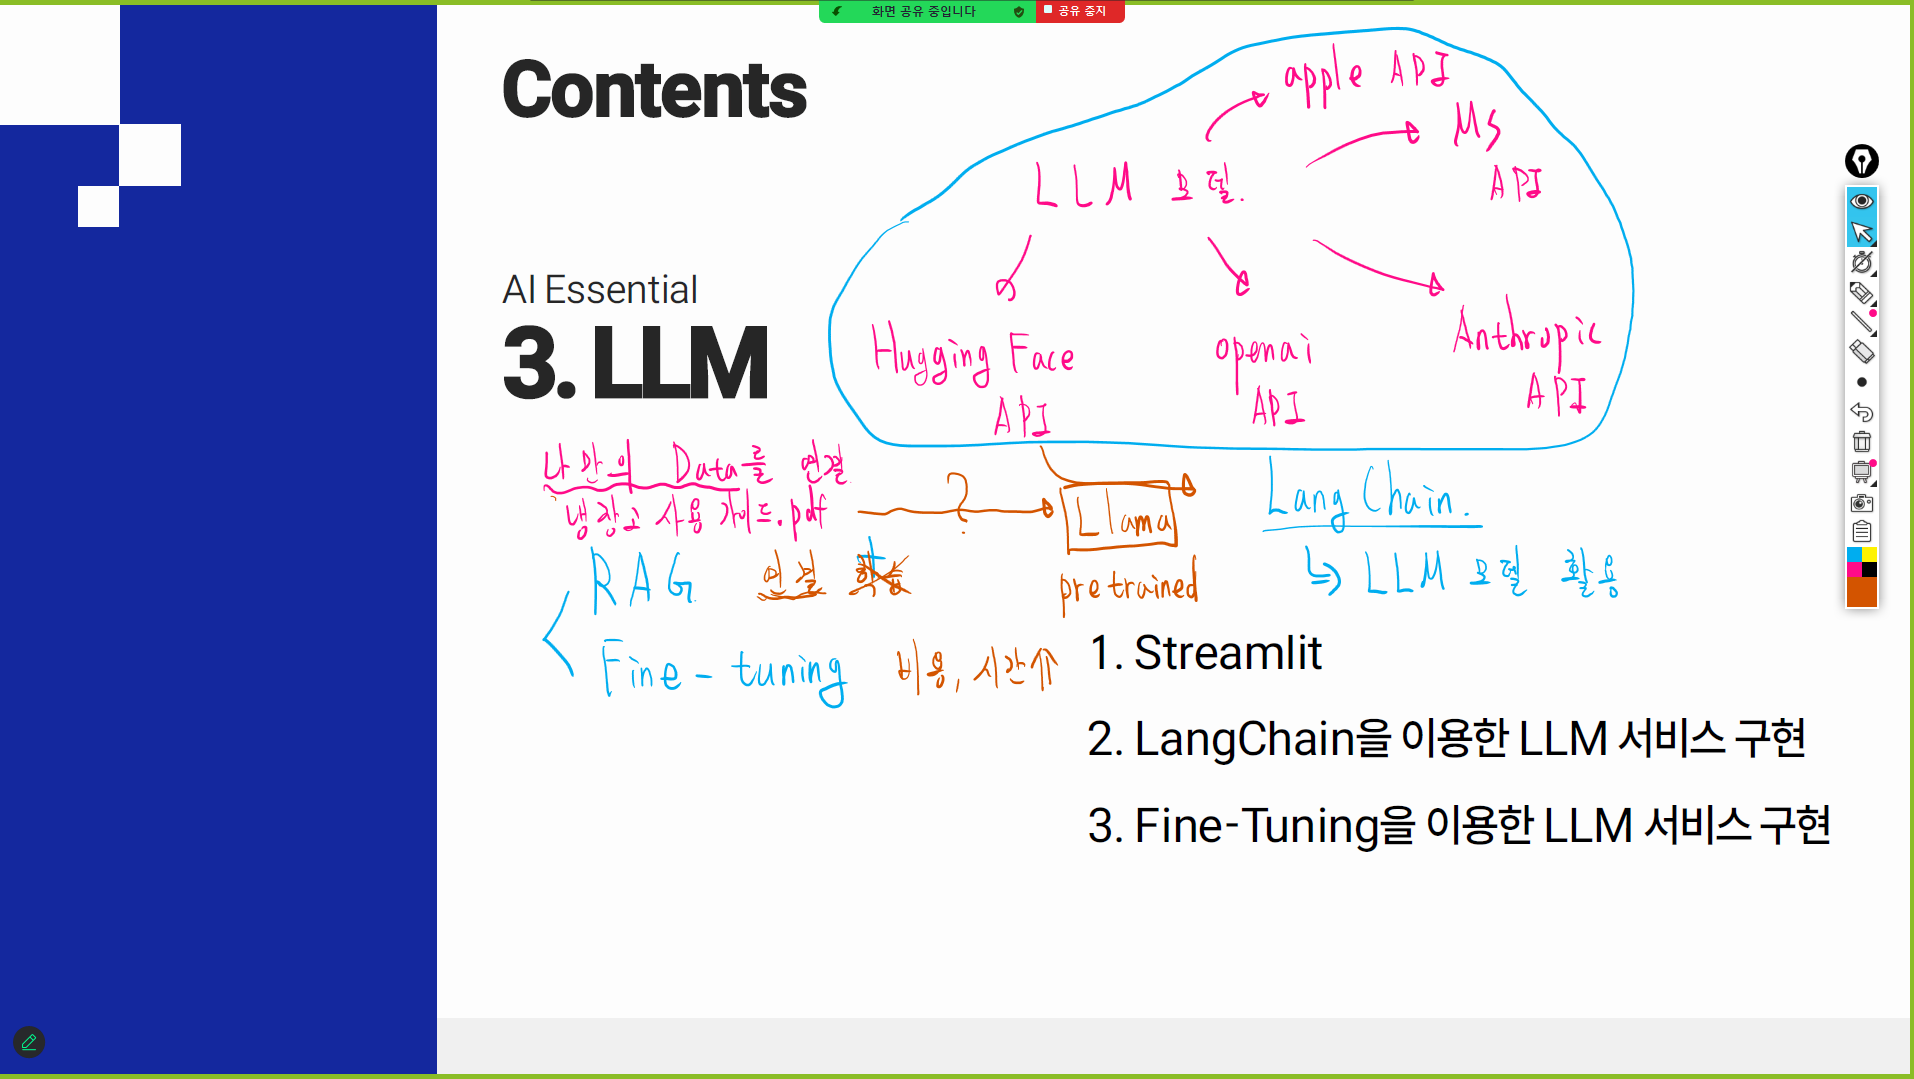 화면 공유 중입니다
공유 중지
Contents
apple API
Ms
API
LLM 모델.
AI Essential
3. LLM
Hugging Face
API
openai
API
Anthropic
API
나만의 Data를 연결
냉장고 사용 가이드.pdf
?
Llama
pretrained
Lang Chain.
LLM 모델 활용
RAG 연결
Fine-tuning 비용, 시간⇑
1. Streamlit
2. LangChain을 이용한 LLM 서비스 구현
3. Fine-Tuning을 이용한 LLM 서비스 구현